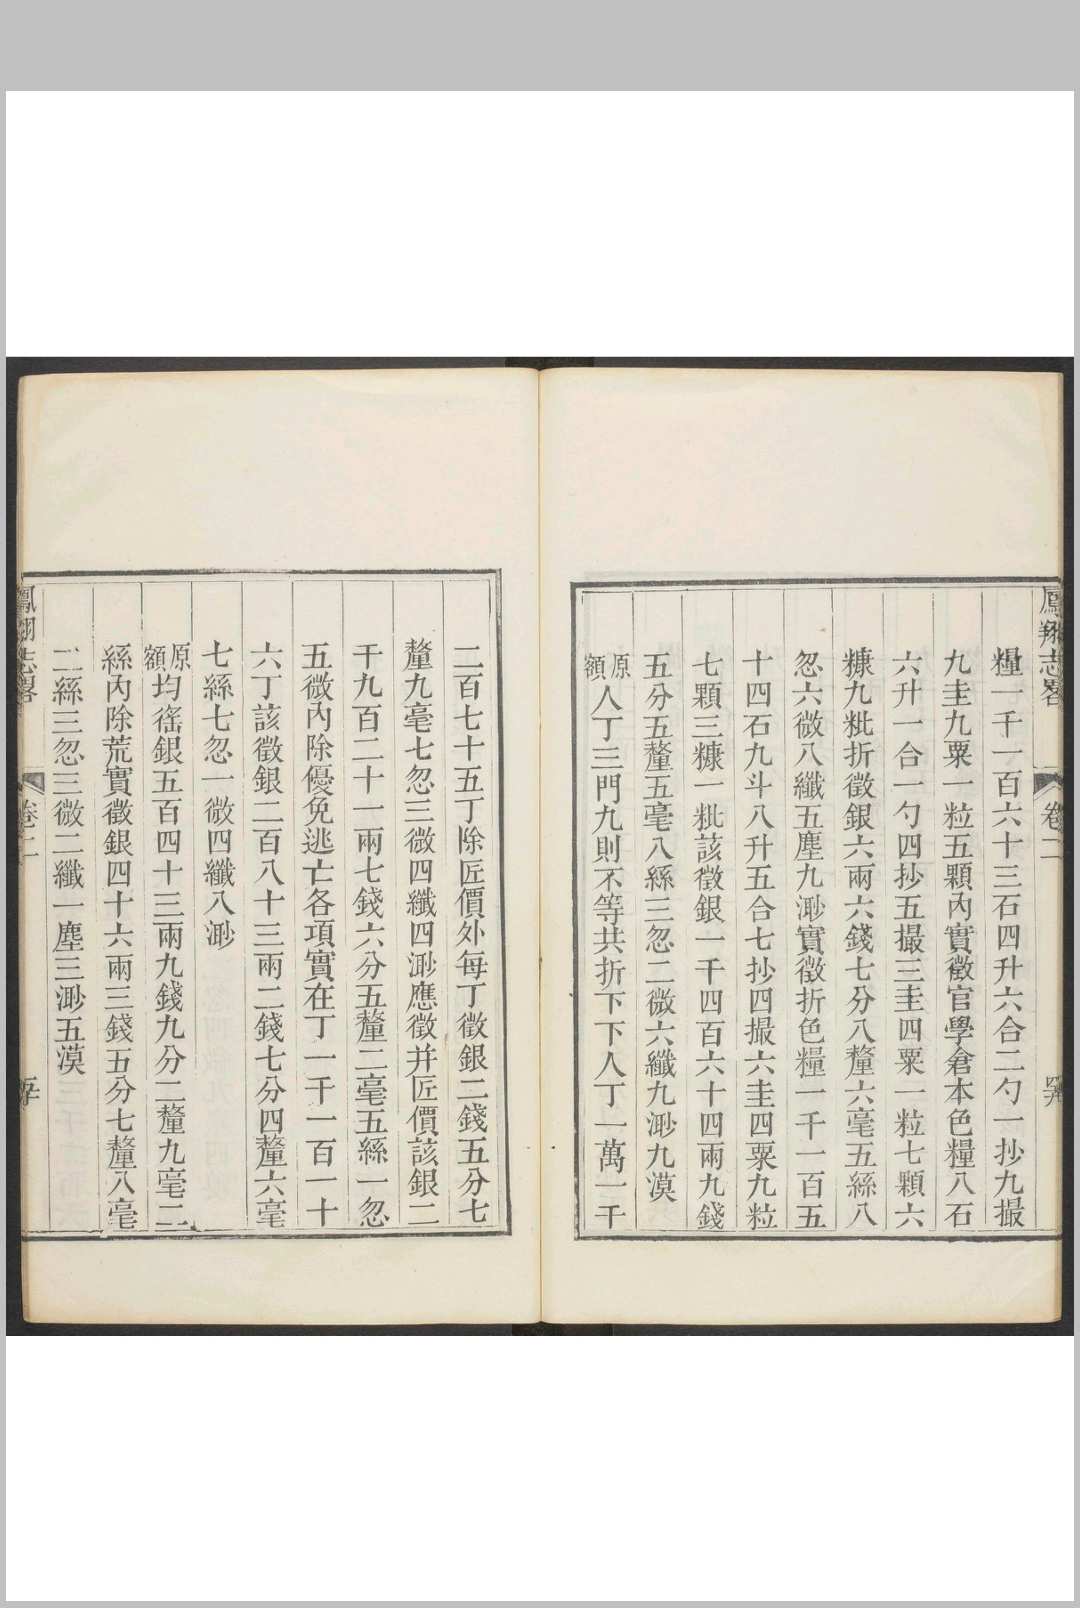 鳳翔志畧 卷二 四九
糧一千一百六十三石四升六合二勺一抄九撮
九圭九粟一粒五顆內實徵官學倉本色糧八石
六升一合一勺四抄五撮三圭四粟一粒七顆六
糠九粃折徵銀六兩六錢七分八釐六毫五絲八
忽六微八纖五塵九渺實徵折色糧一千一百五
十四石九斗八升五合七抄四撮六圭四粟九粒
七顆三糠一粃該徵銀一千四百六十四兩九錢
五分五釐五毫八絲三忽二微六纖九渺九漠
原額人丁三門九則不等共折下下人丁一萬一千
二百七十五丁除匠價外每丁徵銀二錢五分七
釐九毫七忽三微四纖四渺應徵并匠價該銀二
千九百二十一兩七錢六分五釐二毫五絲一忽
五微內除優免逃亡各項實在丁一千一百一十
六丁該徵銀二百八十三兩二錢七分四釐六毫
七絲七忽一微四纖八渺
原額均徭銀五百四十三兩九錢九分二釐九毫二
絲內除荒實徵銀四十六兩三錢五分七釐八毫
二絲三忽三微二纖一塵三渺五漠
鳳翔志畧 卷二 五十